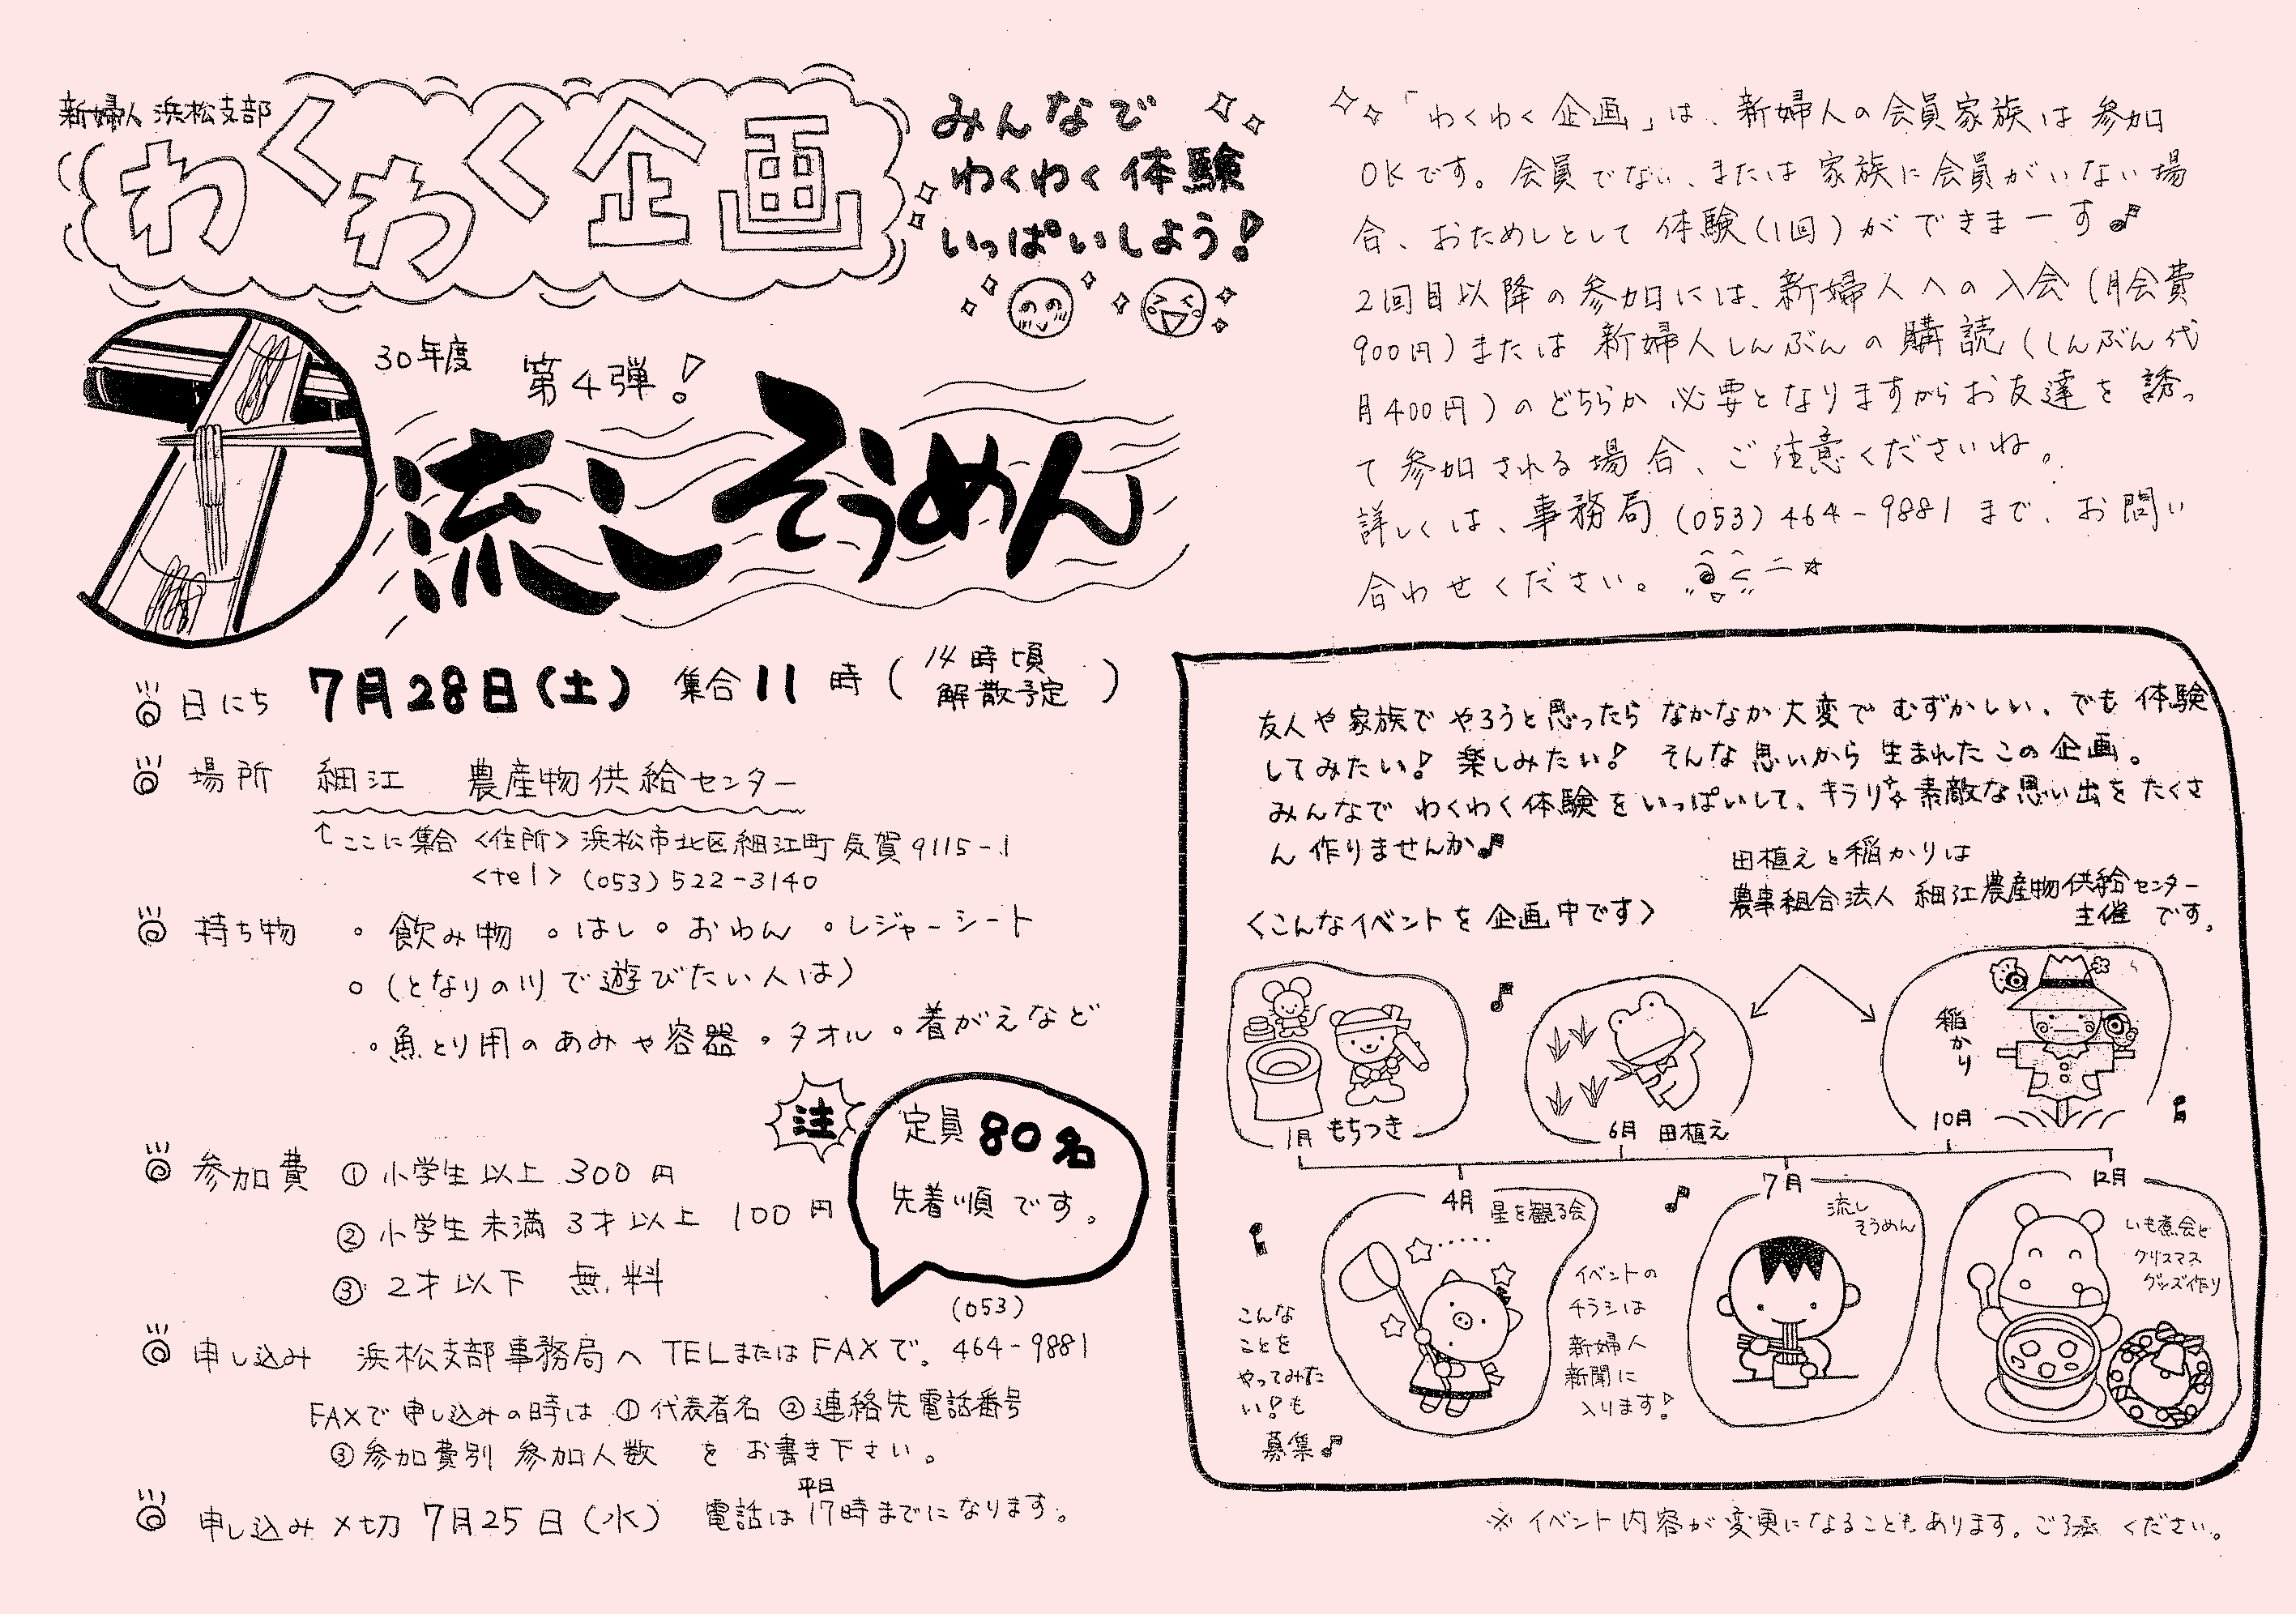 新婦人 浜松支部
わくわく企画
みんなで
わくわく体験
いっぱいしよう!
30年度 第4弾!
流しそうめん
日にち 7月28日(土) 集合11時(14時頃解散予定)
場所 細江 農産物供給センター
↑ここに集合 <住所>浜松市北区細江町気賀9115-1
<tel> (053)522-3140
持ち物 ・飲み物 ・はし ・おわん ・レジャーシート
・(となりの川で遊びたい人は)
・魚とり用のあみや容器 ・タオル ・着がえなど
注
定員80名
先着順です。
参加費 ①小学生以上 300円
②小学生未満3才以上 100円
③2才以下 無料
(053)
申し込み 浜松支部事務局へ TELまたはFAXで。464-9881
FAXで申し込みの時は ①代表者名 ②連絡先電話番号
③参加費別 参加人数 をお書き下さい。
平日
申し込み〆切 7月25日(水) 電話は17時までになります。
「わくわく企画」は、新婦人の会員家族は参加
OKです。会員でない、または家族に会員がいない場
合、おためしとして体験(1回)ができまーす♪
2回目以降の参加には、新婦人への入会(月会費
900円)または新婦人しんぶんの購読(しんぶん代
月400円)のどちらか必要となりますからお友達を誘っ
て参加される場合、ご注意くださいね。
詳しくは、事務局(053)464-9881まで、お問い
合わせください。
友人や家族でやろうと思ったらなかなか大変でむずかしい、でも体験
してみたい!楽しみたい!そんな思いから生まれたこの企画。
みんなでわくわく体験をいっぱいして、キラリ☆素敵な思い出をたくさ
ん作りませんか♪
田植えと稲かりは
農事組合法人 細江農産物供給センター
主催です。
<こんなイベントを企画中です>
1月 もちつき
6月 田植え
稲かり
10月
4月 星を観る会
7月
流し
そうめん
12月
いも煮会と
クリスマス
グッズ作り
こんな
ことを
やってみた
い!も
募集♪
イベントの
チラシは
新婦人
新聞に
入ります!
※イベント内容が変更になることもあります。ご了承ください。